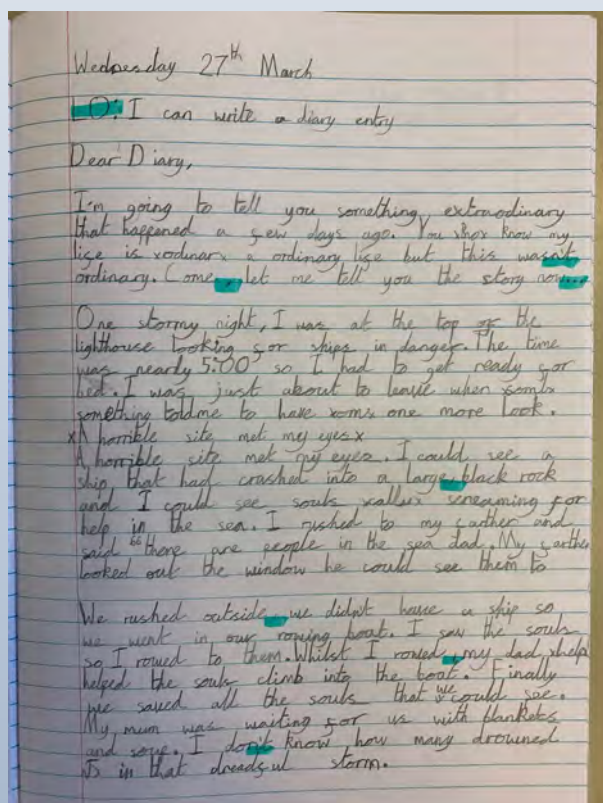 Wednesday 27th March
LO: I can write a diary entry
Dear Diary,
I'm going to tell you something extraodinary
that happened a few days ago. You know my
life is a ordinary life but this wasn't
ordinary. Come, let me tell you the story now...
One stormy night, I was at the top of the
lighthouse looking for ships in danger. The time
was nearly 5:00 so I had to get ready for
bed. I was just about to leave when
something told me to have one more look.
x A horrible site met my eyes x
A horrible site met my eyes. I could see a
ship that had crashed into a large, black rock
and I could see souls screaming for
help in the sea. I rushed to my farther and
said "there are people in the sea dad. My farther
looked out the window he could see them to
We rushed outside, we didn't have a ship so
we went in our rowing boat. I saw the souls
so I rowed to them. Whilst I rowed, my dad
helped the souls climb into the boat. Finally
we saved all the souls that we could see.
My mum was waiting for us with blankets
and soup. I don't know how many drowned
in that dreadful storm.